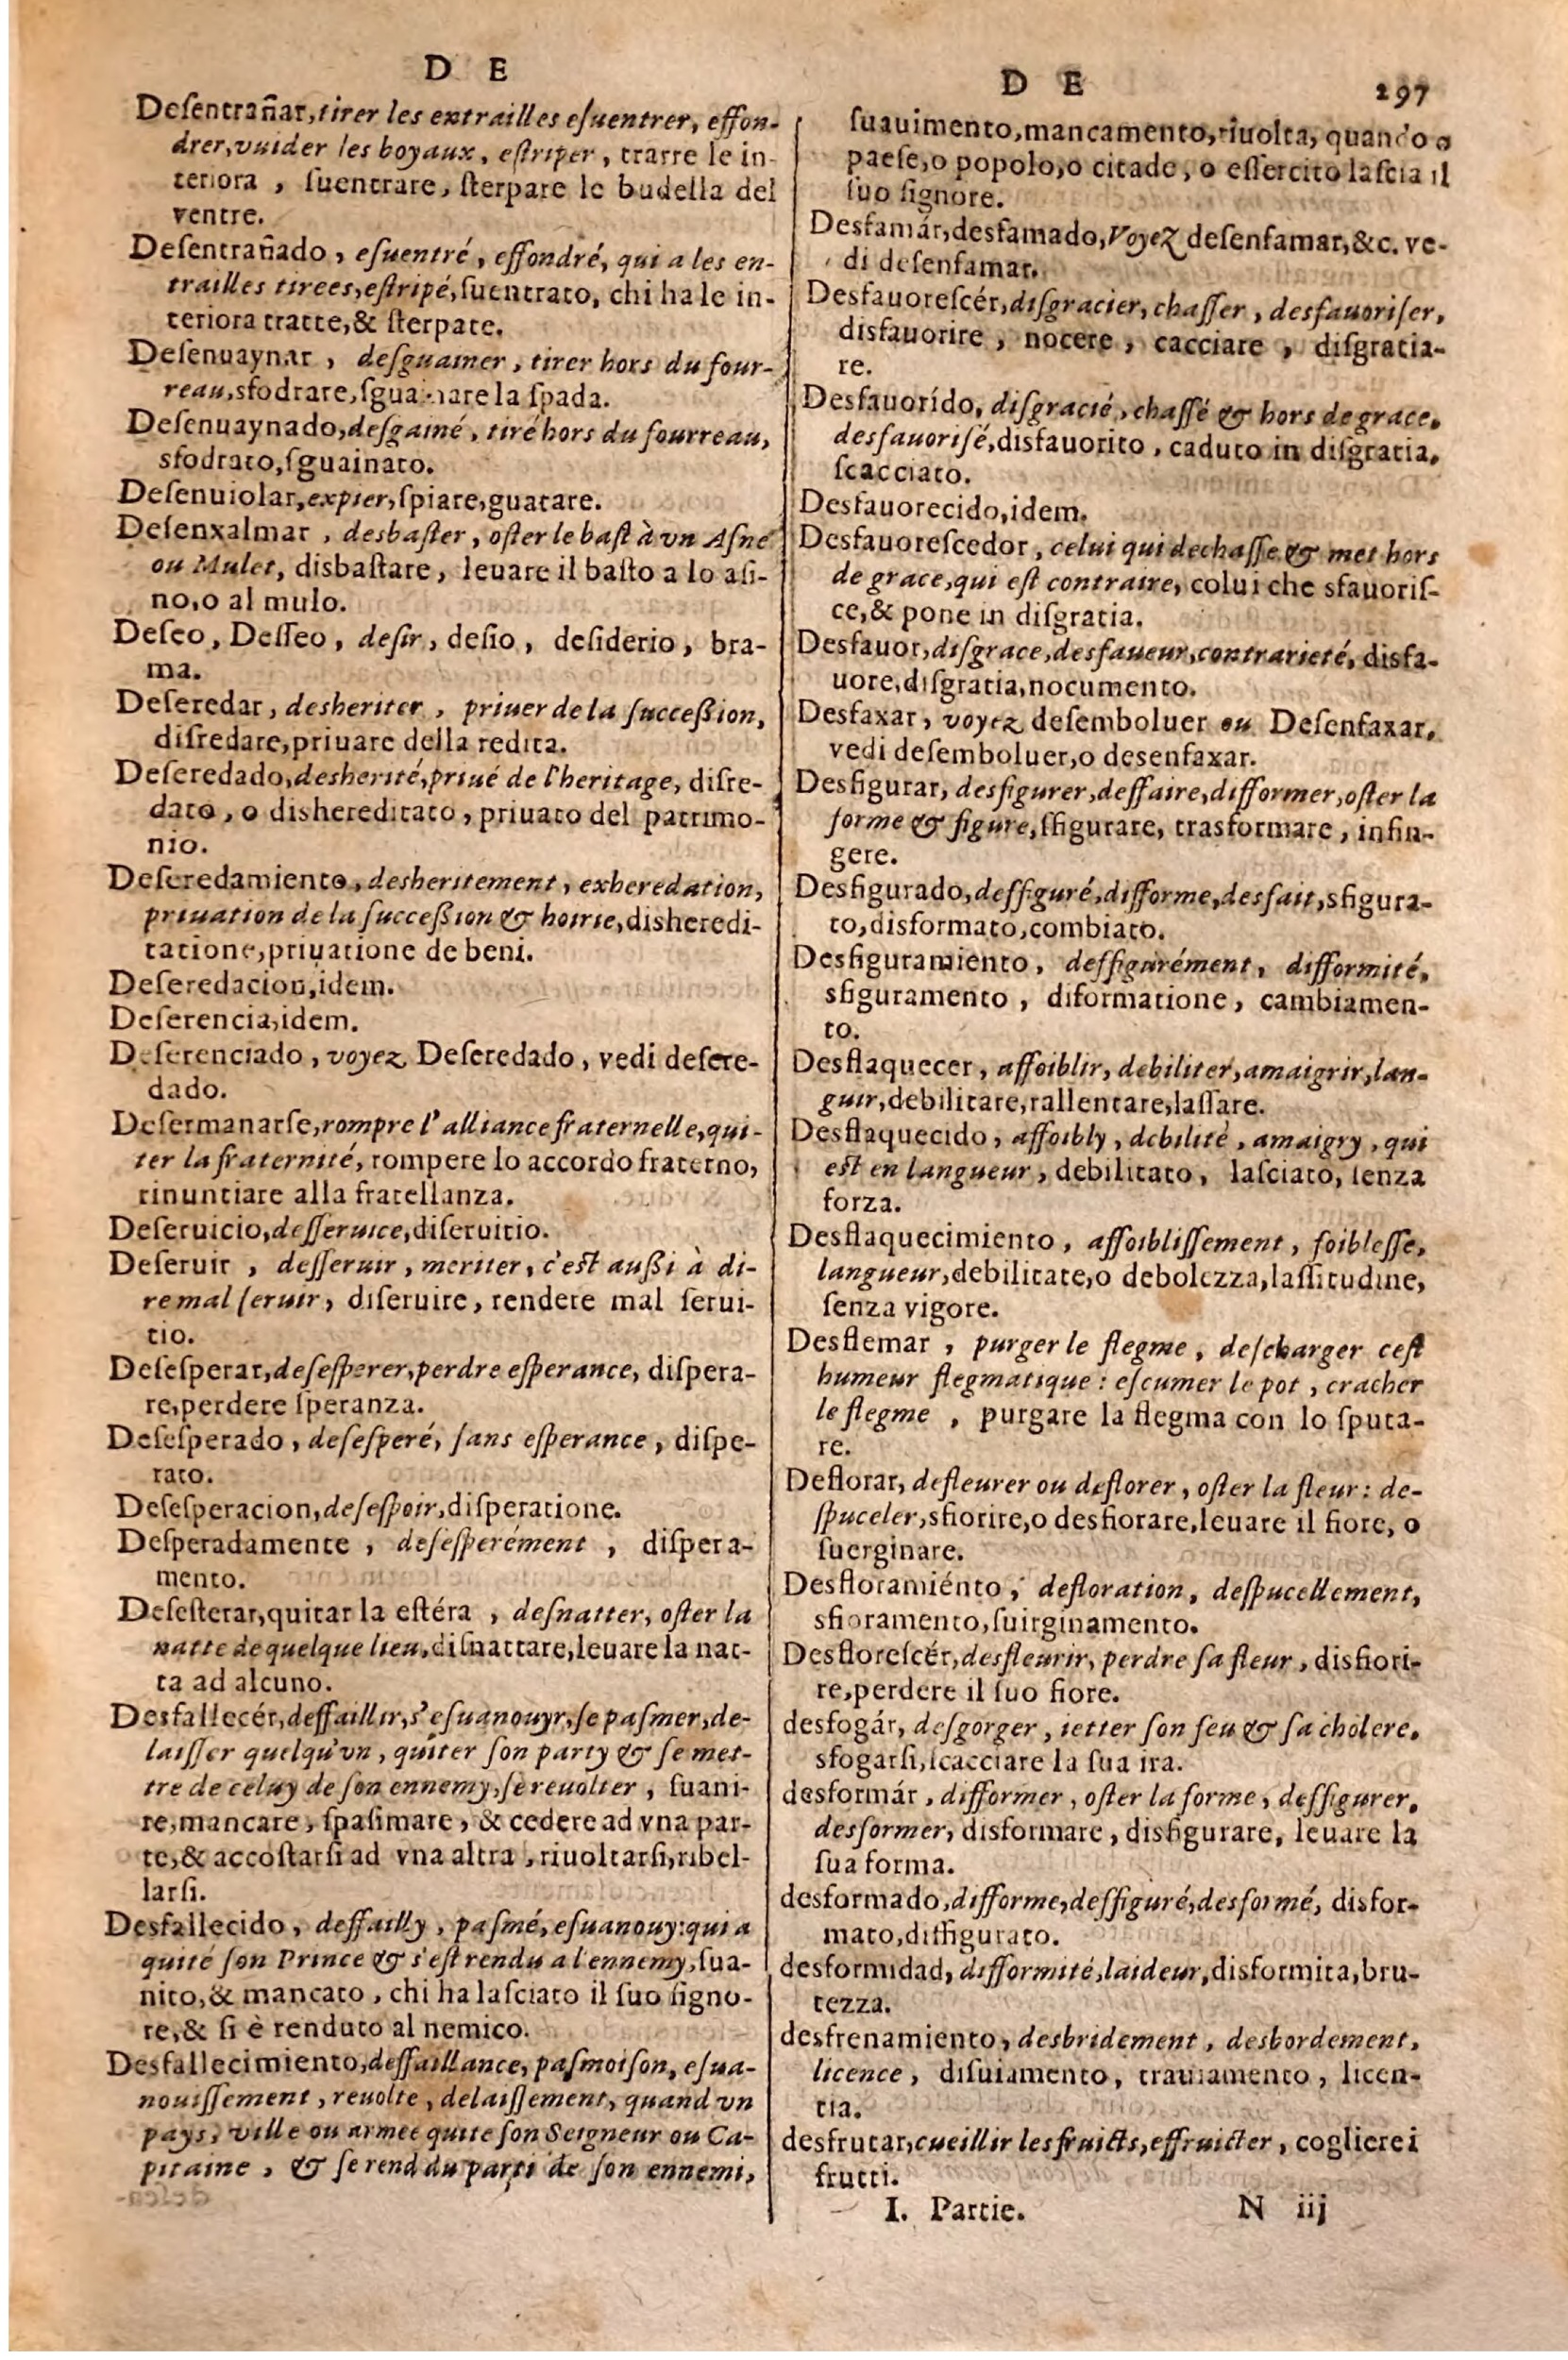 D E
Deſentrañar, tirer les entrailles eſuentrer, effon-
drer, vuider les boyaux, eſtriper, trarre le in-
teriora, ſuentrare, ſterpare le budella del
ventre.
Deſentrañado, eſuentré, effondré, qui a les en-
trailles tirees, eſtripé, ſuentrato, chi ha le in-
teriora tratte, & ſterpate.
Deſenuaynar, deſguainer, tirer hors du four-
reau, sfodrare, ſguainare la ſpada.
Deſenuaynado, deſgainé, tiré hors du fourreau,
sfodrato, ſguainato.
Deſenuiolar, expier, ſpiare, guatare.
Deſenxalmar, desbaſter, oſter le baſt à vn Aſne
ou Mulet, disbaſtare, leuare il baſto a lo aſi-
no, o al mulo.
Deſeo, Deſſeo, deſir, deſio, deſiderio, bra-
ma.
Deſeredar, desheriter, priuer de la ſucceßion,
diſredare, priuare della redita.
Deſeredado, desherité, priué de l'heritage, diſre-
dato, o dishereditato, priuato del patrimo-
nio.
Deſeredamiento, desheritement, exheredation,
priuation de la ſucceßion & hoirie, disheredi-
tatione, priuatione de beni.
Deſeredacion, idem.
Deſerencia, idem.
Deſerenciado, voyez Deſeredado, vedi deſere-
dado.
Deſermanarſe, rompre l'alliance fraternelle, qui-
ter la fraternité, rompere lo accordo fraterno,
rinuntiare alla fratellanza.
Deſeruicio, deſſeruice, diſeruitio.
Deſeruir, deſſeruir, meriter, c'eſt außi à di-
re mal ſeruir, diſeruire, rendere mal ſerui-
tio.
Deſeſperar, deſeſperer, perdre eſperance, diſpera-
re, perdere ſperanza.
Deſeſperado, deſeſperé, ſans eſperance, diſpe-
rato.
Deſeſperacion, deſeſpoir, diſperatione.
Deſperadamente, deſeſperément, diſpera-
mento.
Deſeſterar, quitar la eſtéra, deſnatter, oſter la
natte de quelque lieu, diſnattare, leuare la nat-
ta ad alcuno.
Desfallecér, deffaillir, s'eſuanouyr, ſe paſmer, de-
laiſſer quelqu'vn, quiter ſon party & ſe met-
tre de celuy de ſon ennemy, ſe reuolter, ſuani-
re, mancare, ſpaſimare, & cedere ad vna par-
te, & accoſtarſi ad vna altra, riuoltarſi, ribel-
larſi.
Desfallecido, deffailly, paſmé, eſuanouy: qui a
quité ſon Prince & s'eſt rendu a l'ennemy, ſua-
nito, & mancato, chi ha laſciato il ſuo ſigno-
re, & ſi è renduto al nemico.
Desfallecimiento, deffaillance, paſmoiſon, eſua-
nouiſſement, reuolte, delaiſſement, quand vn
pays, ville ou armee quite ſon Seigneur ou Ca-
pitaine, & ſe rend du parti de ſon ennemi,
D E 297
ſuauimento, mancamento, riuolta, quando o
paeſe, o popolo, o citade, o eſſercito laſcia il
ſuo ſignore.
Desfamár, desfamado, Voyez deſenfamar, &c. ve-
di deſenfamar.
Desfauoreſcér, diſgracier, chaſſer, desfauoriſer,
disfauorire, nocere, cacciare, diſgratia-
re.
Desfauorído, diſgracié, chaſſé & hors de grace,
desfauoriſé, disfauorito, caduto in diſgratia,
ſcacciato.
Desfauorecido, idem.
Desfauoreſcedor, celui qui dechaſſe & met hors
de grace, qui eſt contraire, colui che sfauoriſ-
ce, & pone in diſgratia.
Desfauor, diſgrace, desfaueur, contrarieté, disfa-
uore, diſgratia, nocumento.
Desfaxar, voyez deſemboluer ou Deſenfaxar,
vedi deſemboluer, o desenfaxar.
Desfigurar, desfigurer, deffaire, difformer, oſter la
forme & figure, ſfigurare, trasformare, infin-
gere.
Desfigurado, deffiguré, difforme, desfait, sfigura-
to, disformato, combiato.
Desfiguramiento, deffigurément, difformité,
sfiguramento, diformatione, cambiamen-
to.
Desflaquecer, affoiblir, debiliter, amaigrir, lan-
guir, debilitare, rallentare, laſſare.
Desflaquecido, affoibly, debilité, amaigry, qui
eſt en langueur, debilitato, laſciato, ſenza
forza.
Desflaquecimiento, affoibliſſement, foibleſſe,
langueur, debilitate, o debolezza, laſſitudine,
ſenza vigore.
Desflemar, purger le flegme, deſcharger ceſt
humeur flegmatique: eſcumer le pot, cracher
le flegme, purgare la flegma con lo ſputa-
re.
Deflorar, defleurer ou deflorer, oſter la fleur: de-
ſpuceler, sfiorire, o desfiorare, leuare il fiore, o
ſuerginare.
Desfloramiénto, defloration, deſpucellement,
sfioramento, ſuirginamento.
Desfloreſcér, desfleurir, perdre ſa fleur, disfiori-
re, perdere il ſuo fiore.
desfogár, deſgorger, ietter ſon feu & ſa cholere,
sfogarſi, ſcacciare la ſua ira.
desformár, difformer, oſter la forme, deffigurer,
desformer, disformare, disfigurare, leuare la
ſua forma.
desformado, difforme, deffiguré, desformé, disfor-
mato, diffigurato.
desformidad, difformité, laideur, disformita, bru-
tezza.
desfrenamiento, desbridement, desbordement,
licence, diſuiamento, trauiamento, licen-
tia.
desfrutar, cueillir les fruicts, effruicter, coglierei
frutti.
I. Partie. N iij